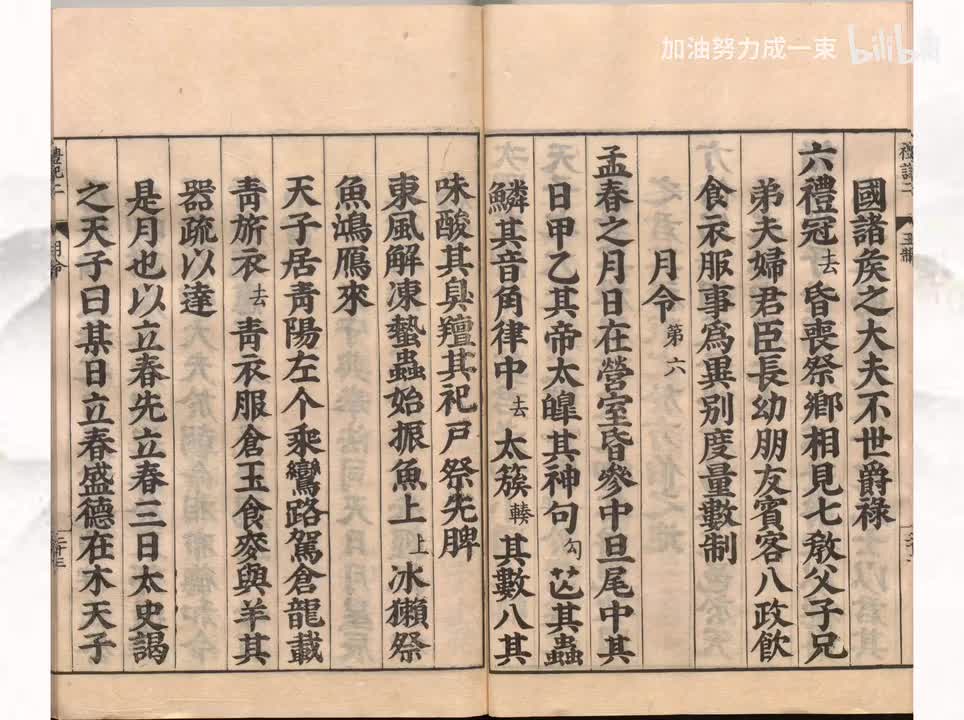 加油努力成一束 bilibili
國諸矦之大夫不世爵祿
六禮冠去昏喪祭鄉相見七敎父子兄
弟夫婦君臣長幼朋友賓客八政飲
食衣服事爲異別度量數制
月令第六
孟春之月日在營室昏參中旦尾中其
日甲乙其帝太皞其神句勾芒其蟲
鱗其音角律中去太簇輳其數八其
味酸其臭羶其祀戶祭先脾
東風解凍蟄蟲始振魚上上冰獺祭
魚鴻鴈來
天子居靑陽左个乘鸞路駕倉龍載
靑旂衣去靑衣服倉玉食麥與羊其
器疏以達
是月也以立春先立春三日太史謁
之天子曰某日立春盛德在木天子
禮記二
月令
二十三